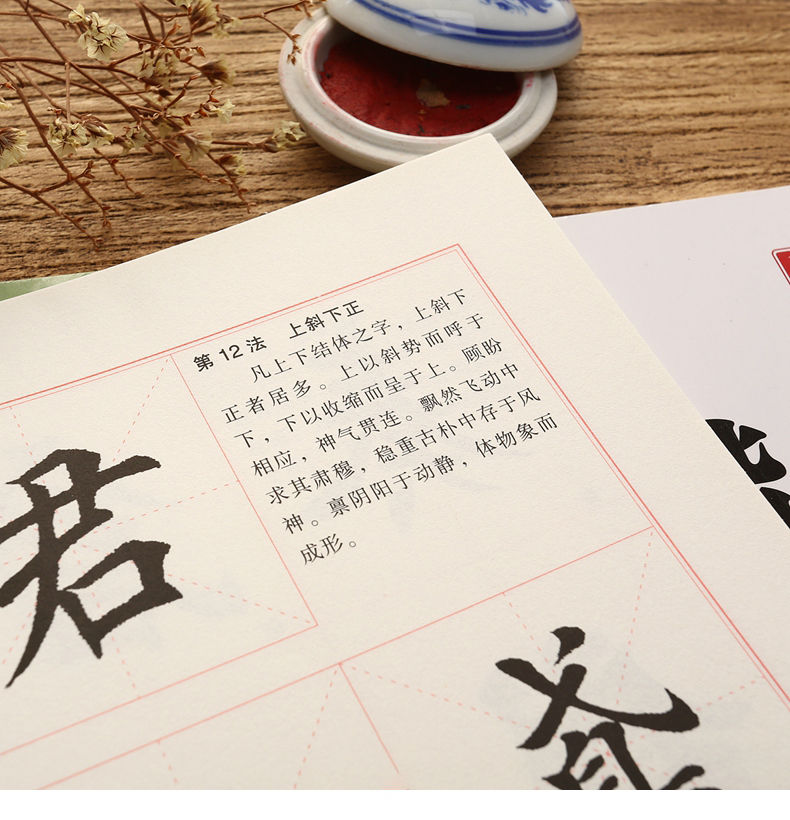 第12法 上斜下正
凡上下结体之字，上斜下
正者居多。上以斜势而呼于
下，下以收缩而呈于上。顾盼
相应，神气贯连。飘然飞动中
求其肃穆，稳重古朴中存于风
神。禀阴阳于动静，体物象而
成形。
君